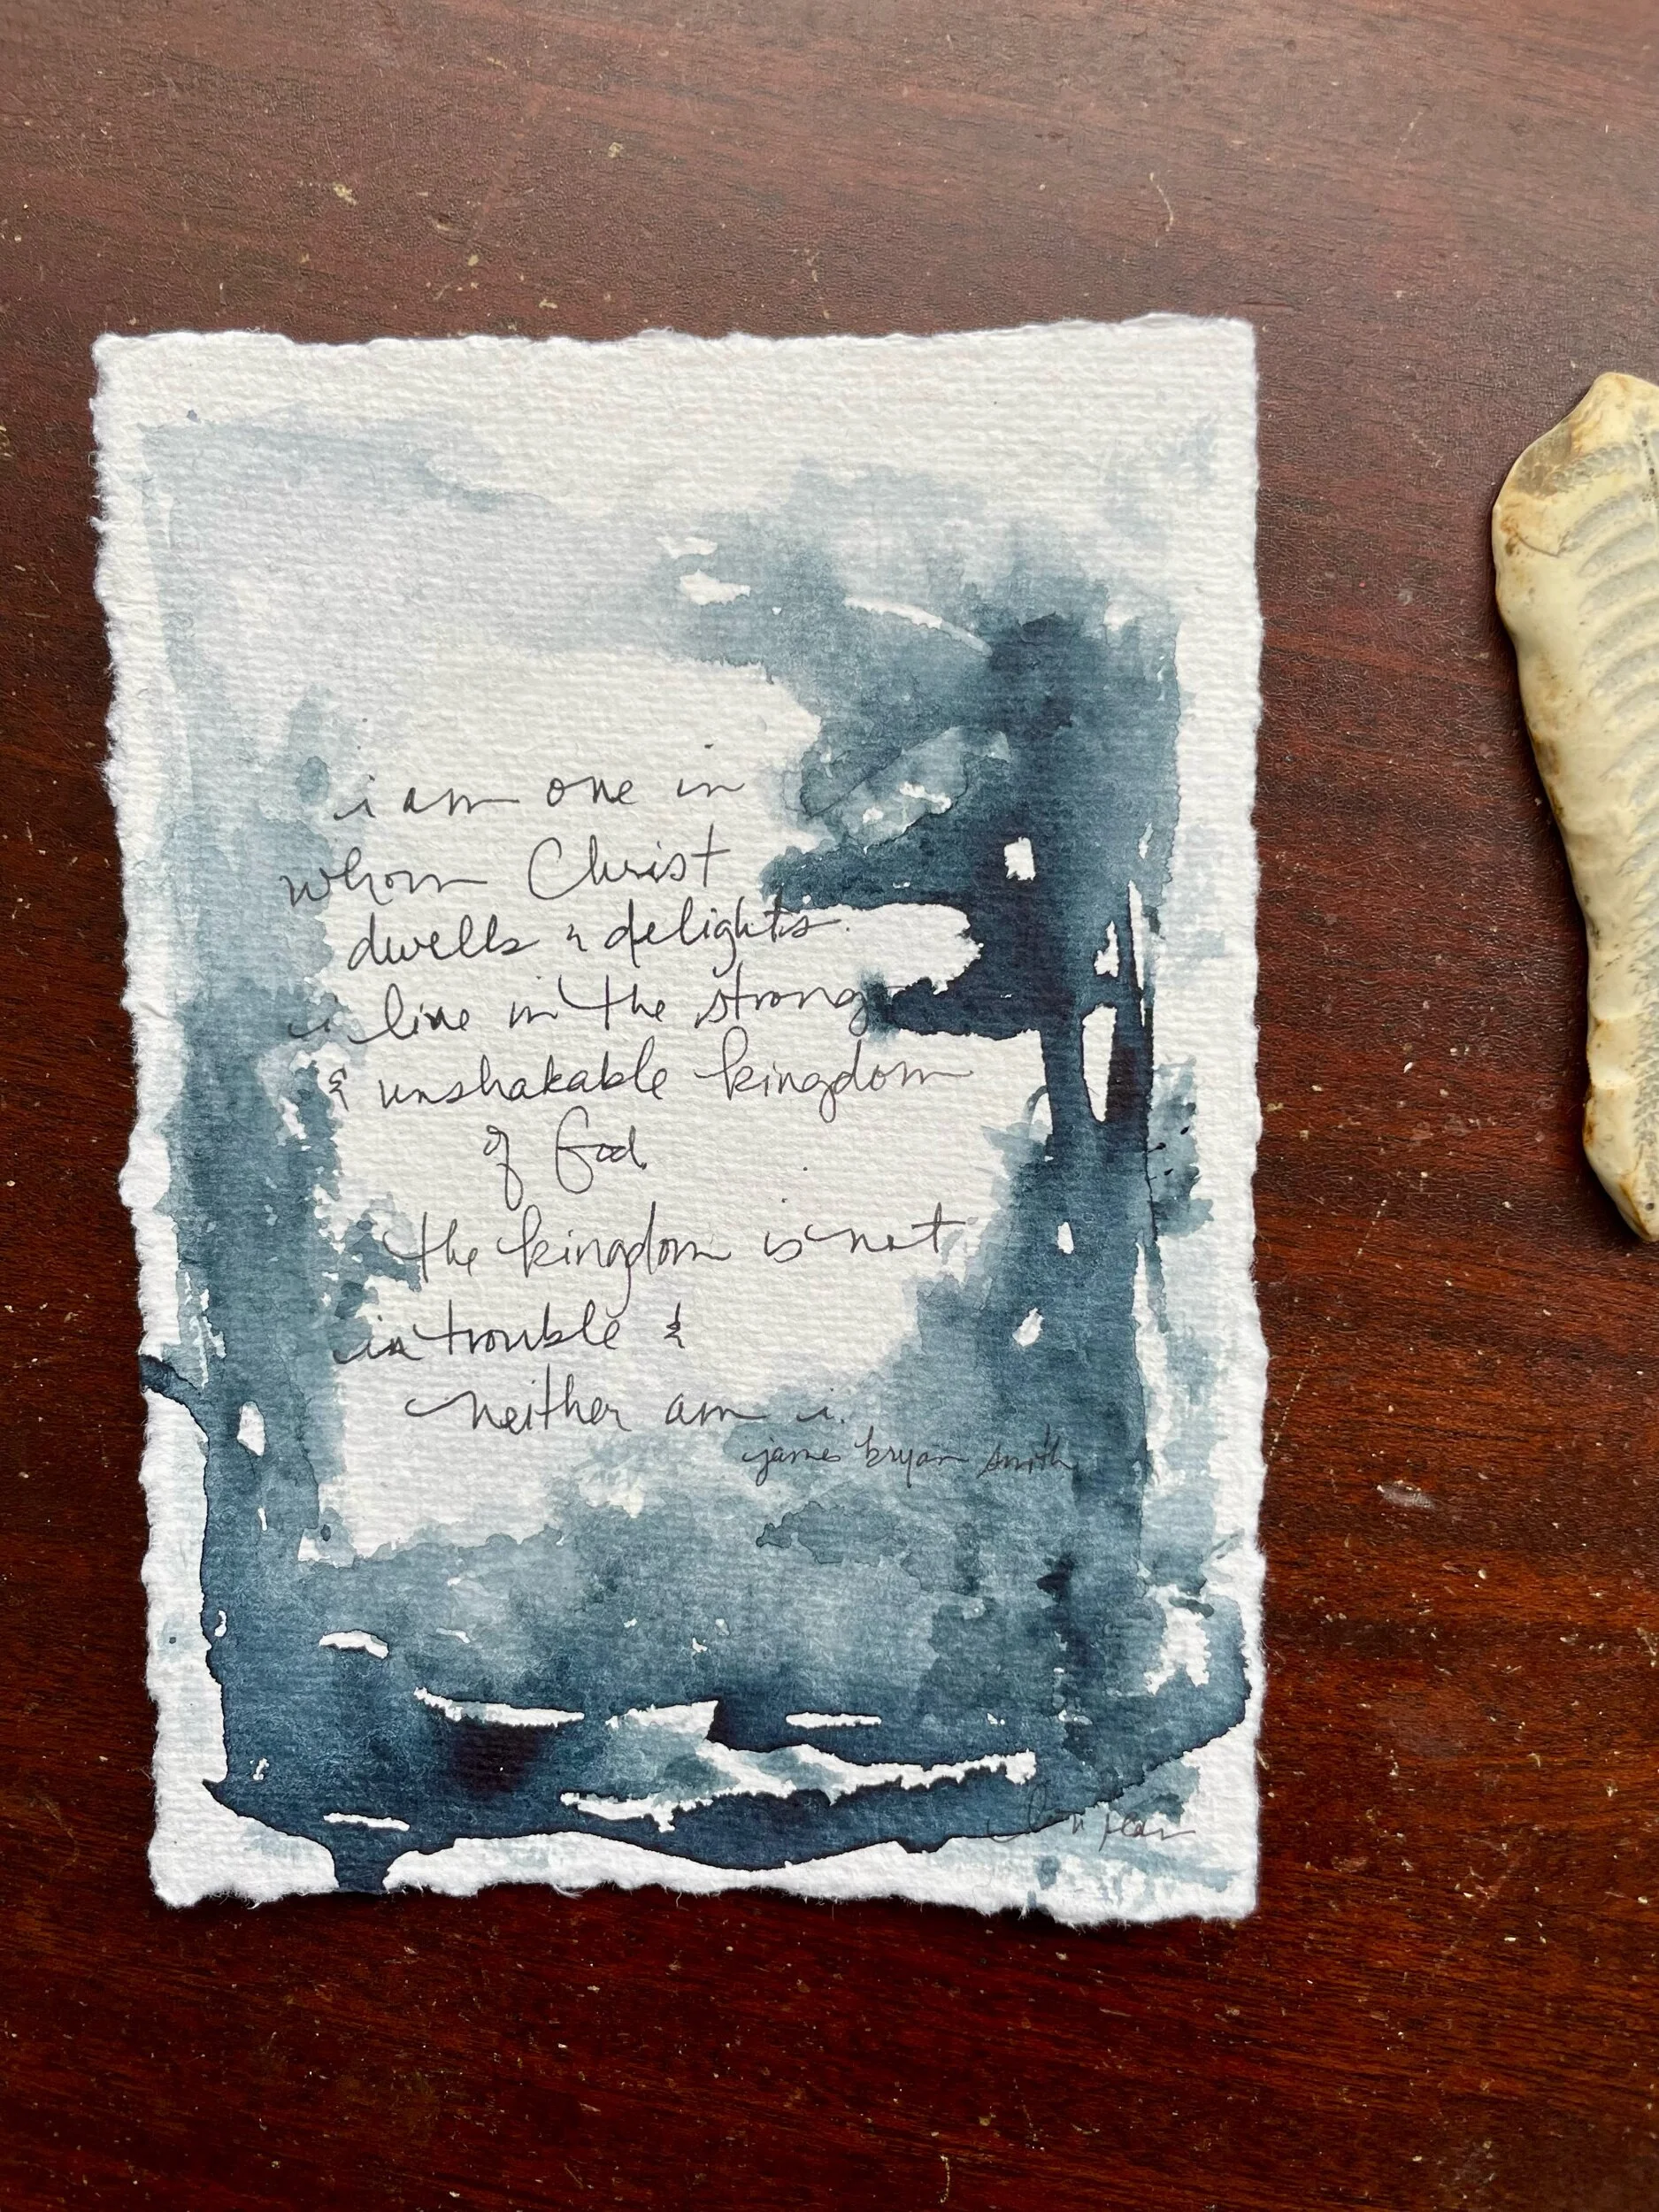 i am one in
whom Christ
dwells & delights.
i live in the strong
& unshakable kingdom
of God.
the kingdom is not
in trouble &
neither am i.
james bryan smith